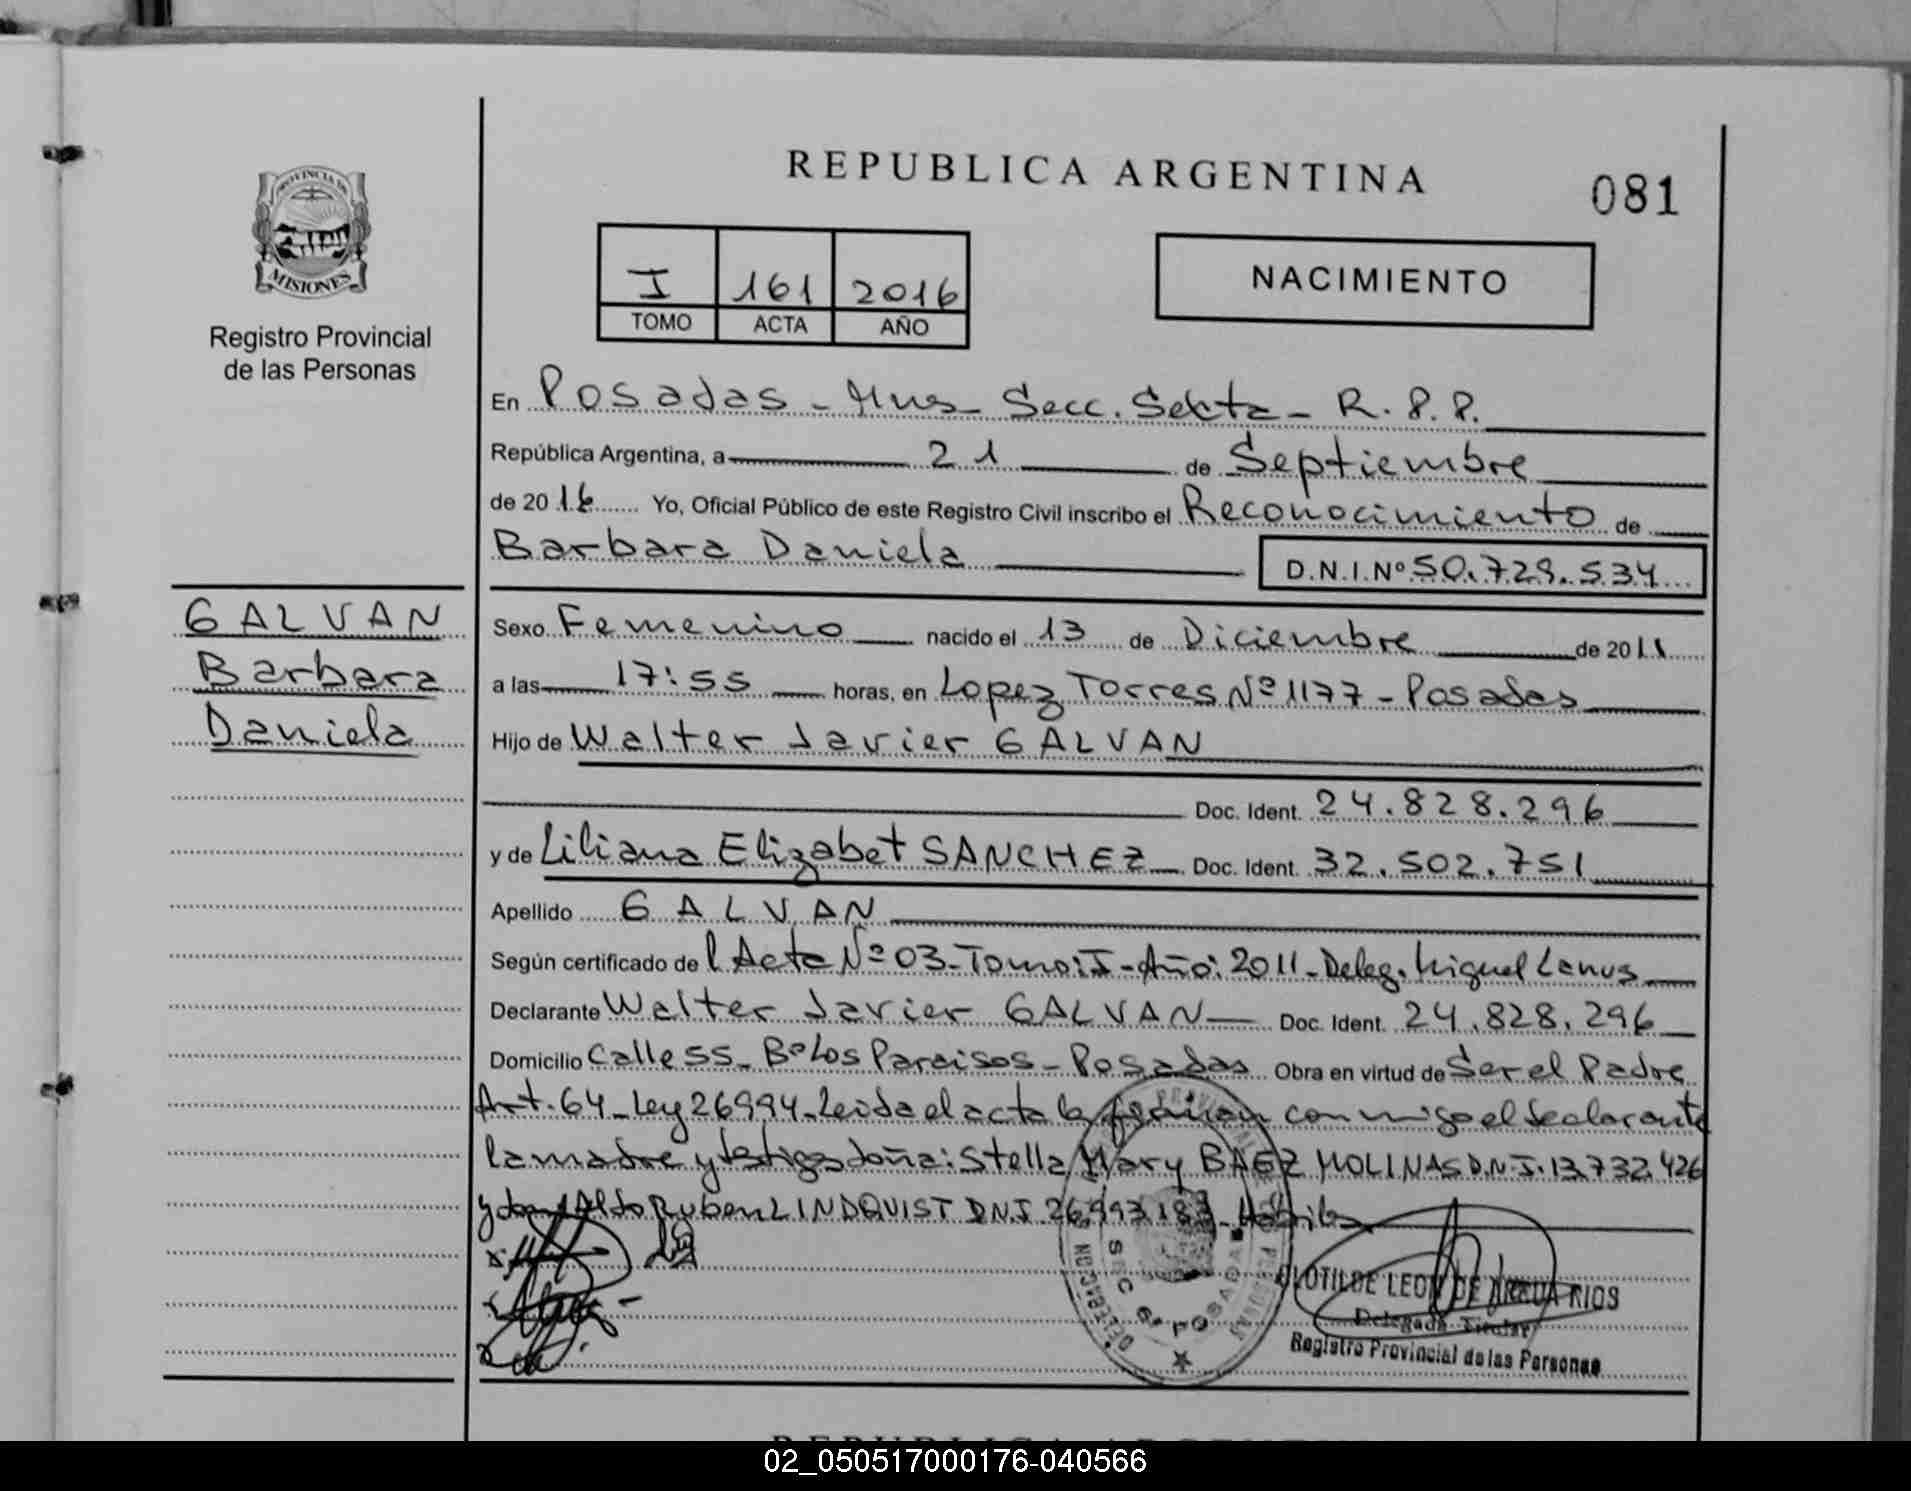 REPUBLICA ARGENTINA
081
PROVINCIA DE
MISIONES
Registro Provincial
de las Personas
I 161 2016
TOMO ACTA AÑO
NACIMIENTO
En Posadas - Mnes - Secc. Sexta - R.P.P.
República Argentina, a 21 de Septiembre
de 2016 Yo, Oficial Público de este Registro Civil inscribo el Reconocimiento de
Barbara Daniela D.N.I.Nº 50.729.534
GALVAN
Barbara
Daniela
Sexo Femenino nacido el 13 de Diciembre de 2011
a las 17:55 horas, en Lopez Torres Nº 1177 - Posadas
Hijo de Walter Javier GALVAN
Doc. Ident. 24.828.296
y de Liliana Elizabet SANCHEZ Doc. Ident. 32.502.751
Apellido GALVAN
Según certificado del Acta Nº 03 - Tomo: I - Año: 2011 - Deleg. Miguel Lanus
Declarante Walter Javier GALVAN Doc. Ident. 24.828.296
Domicilio Calle 55 - Bº Los Paraisos - Posadas Obra en virtud de Ser el Padre
Art. 64 - Ley 26994 - Leida el acta la firman conmigo el declarante
la madre y testigos doña: Stella Mary BAEZ MOLINAS D.N.I. 13.732.426
y don Aldo Ruben LINDQUIST DNI 26.993.183
SECC 6ª POSADAS
CLOTILDE LEON DE ARRUA RIOS
Delegada Titular
Registro Provincial de las Personas
02_050517000176-040566